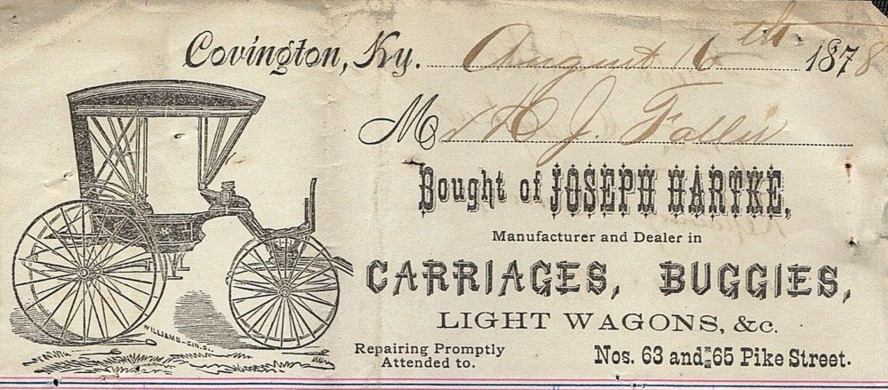 Covington, Ky. August 16th 1878
Mr J.
Bought of JOSEPH HARTKE,
Manufacturer and Dealer in
CARRIAGES, BUGGIES,
LIGHT WAGONS, &c.
Repairing Promptly
Attended to.
Nos. 63 and 65 Pike Street.
WILLIAMS-CIN.O.